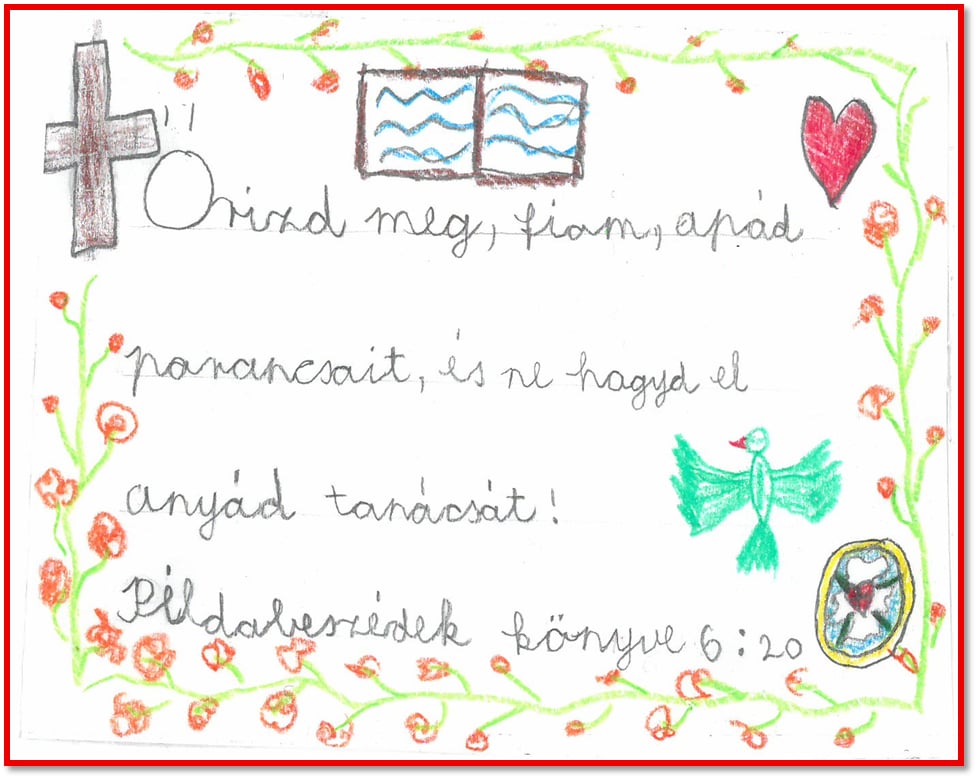 Őrizd meg, fiam, apád
parancsait, és ne hagyd el
anyád tanácsát!
Példabeszédek könyve 6:20